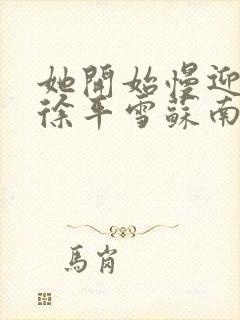 她開始慢迎
徐平雪蘇南
馬肖